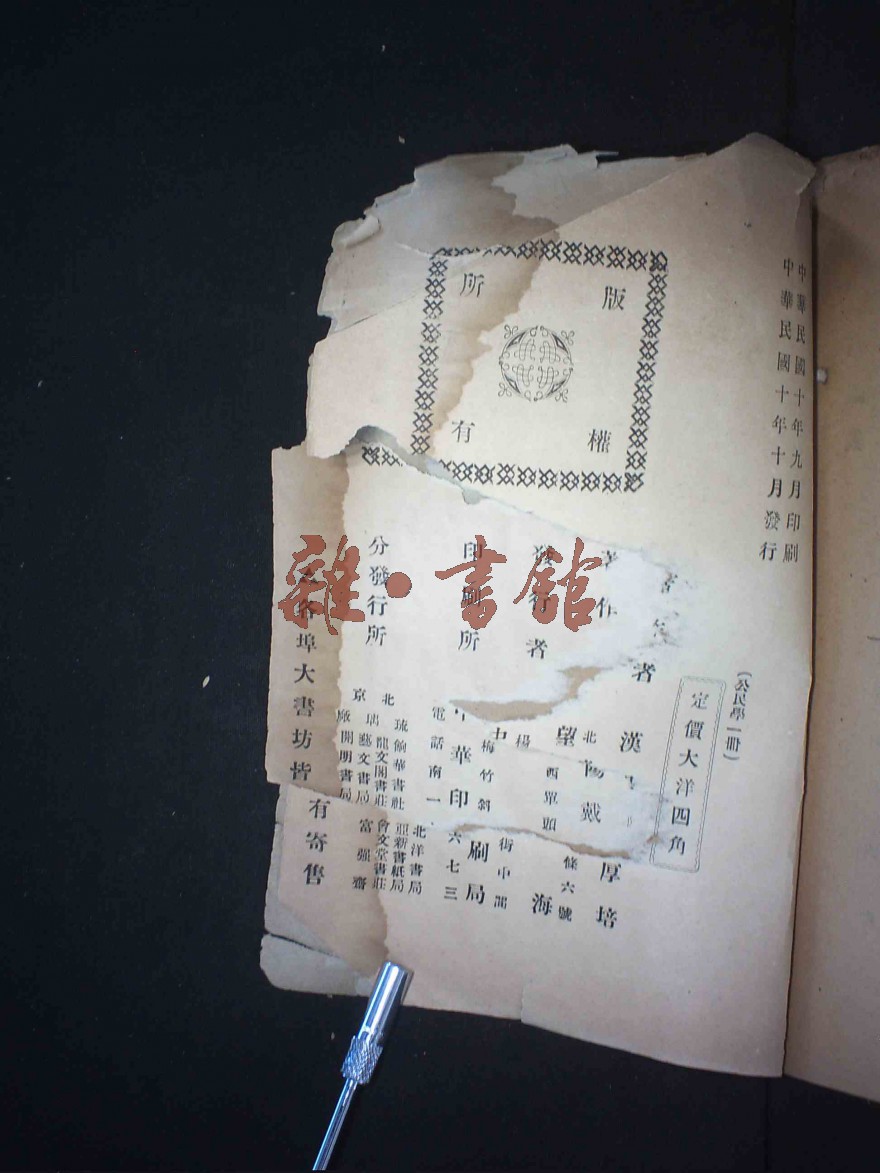 中華民國十年九月印刷
中華民國十年十月發行
版權所有
(公民學一冊)
定價大洋四角
著作者
漢
厚培
戴
發行者
望
海
北
西單頭
條六號
楊
印刷所
中華印刷局
梅竹斜街中間
電話南一六七三
分發行所
北京琉璃廠
龍文閣書莊
藝文書局
開明書局
北洋書局
亞新書紙局
會文堂書莊
富强齋
各埠大書坊皆有寄售
雜·書舘